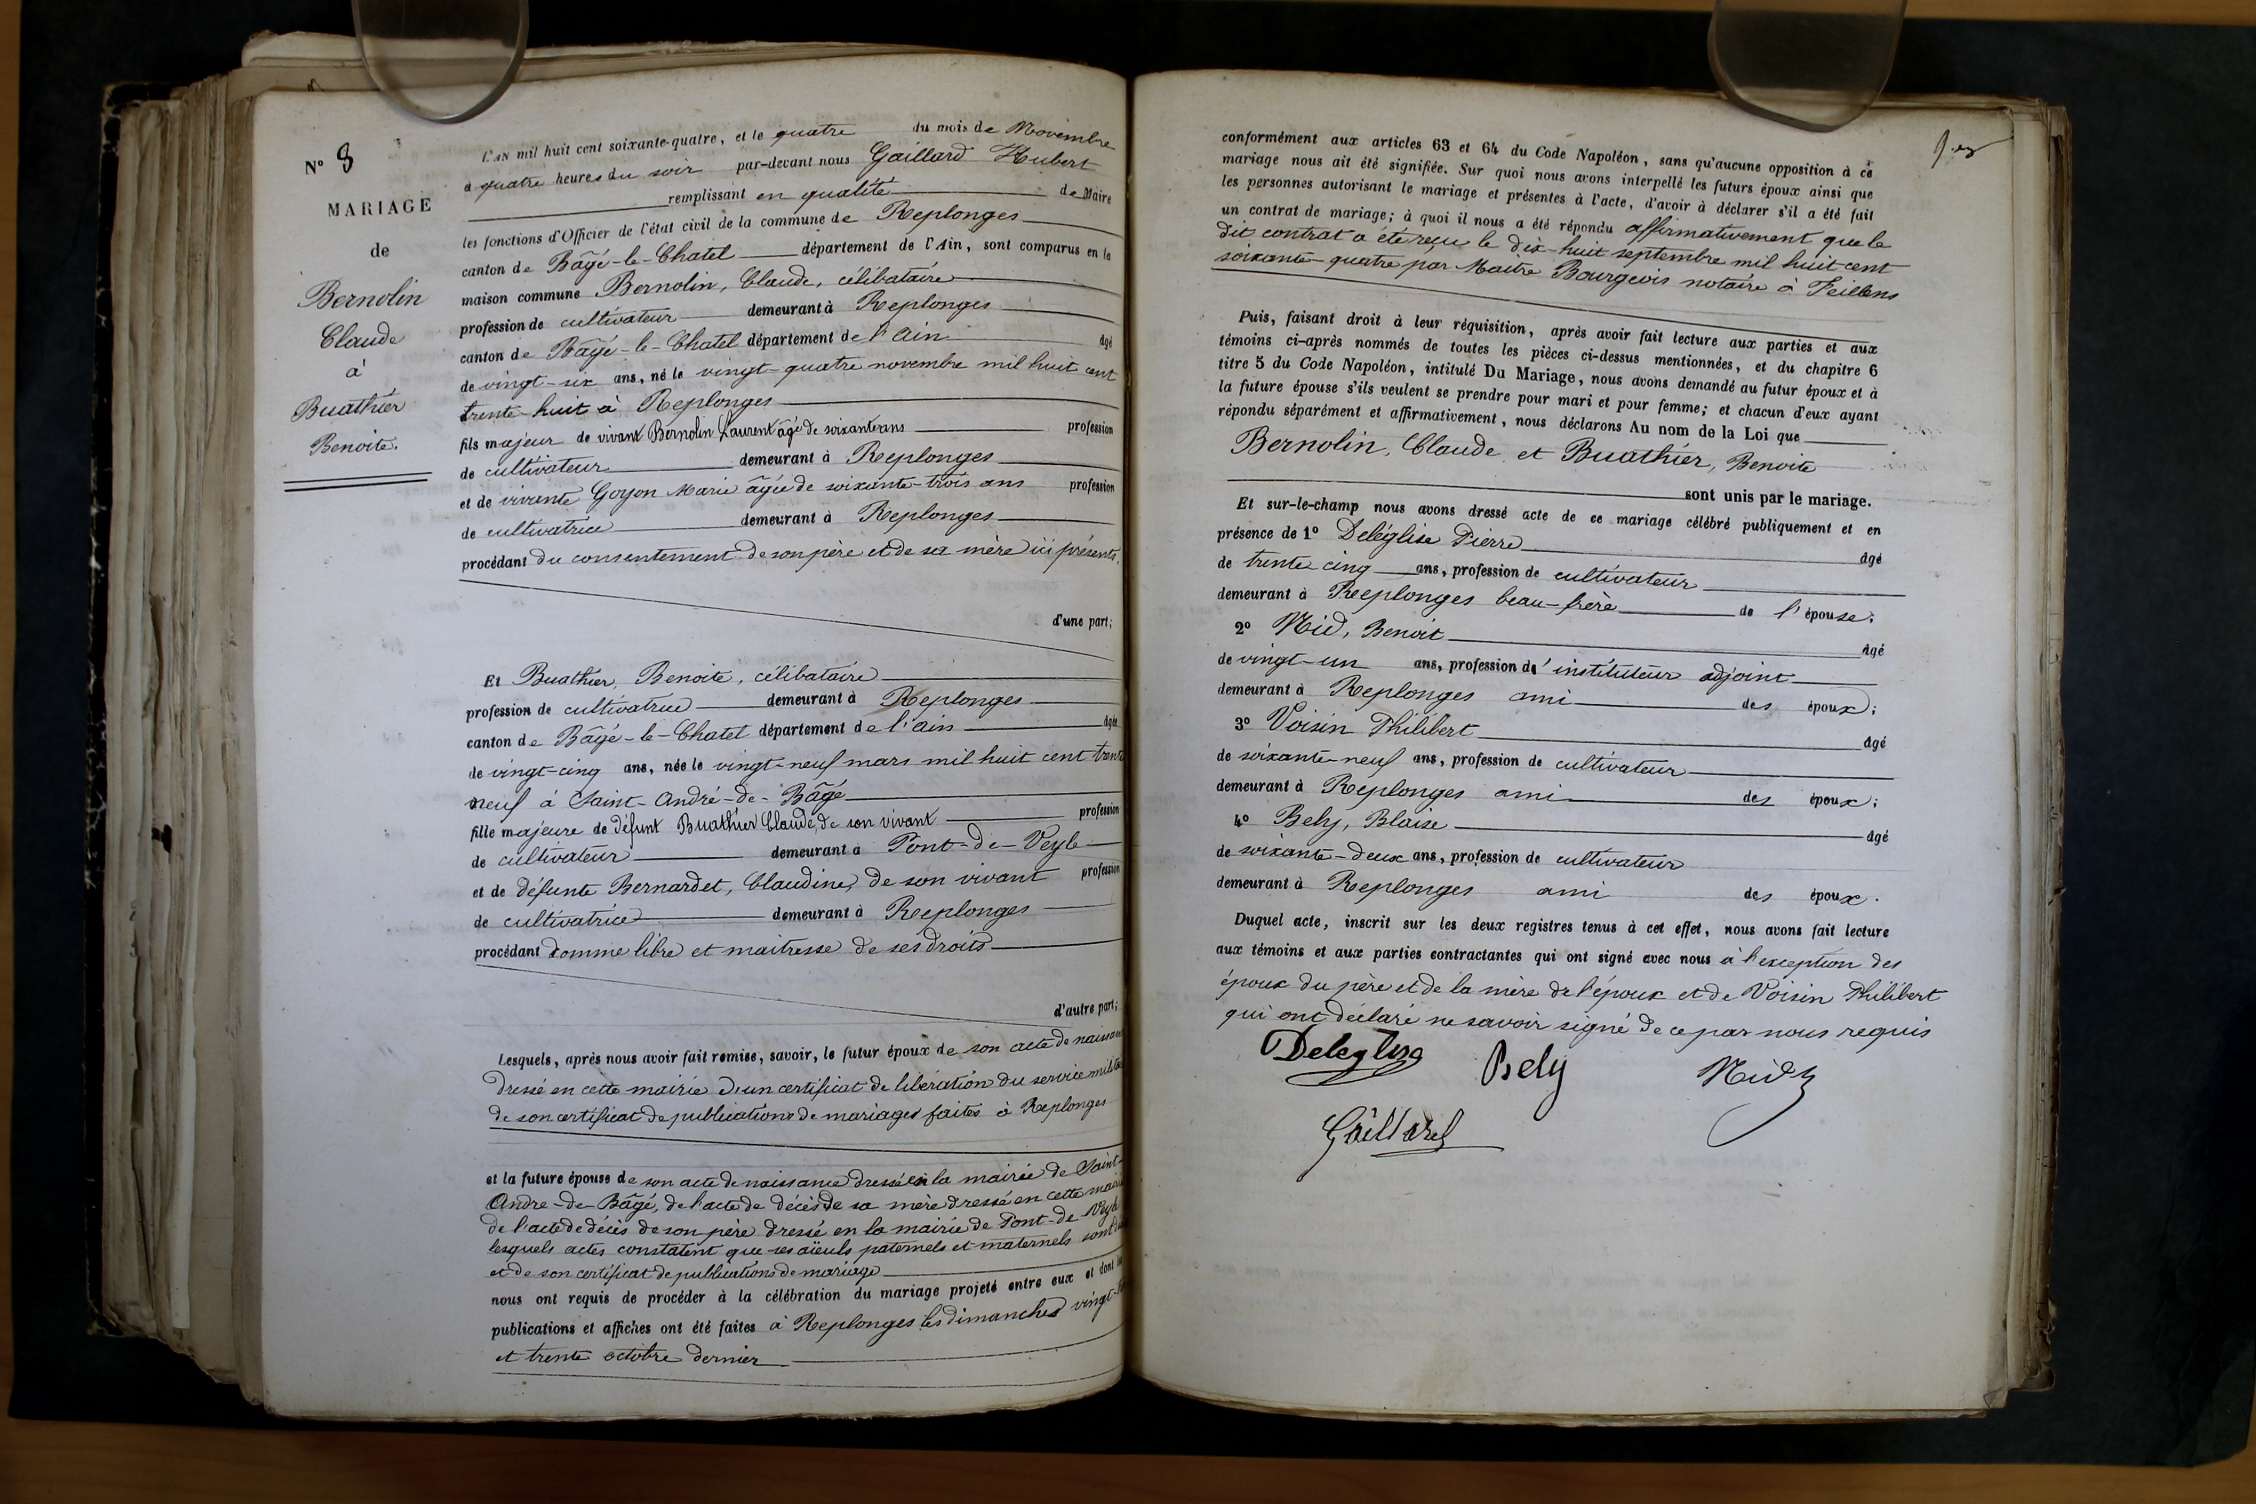 N° 8
MARIAGE
de
Bernolin
Claude
à
Buathier
Benoite.
L'AN mil huit cent soixante-quatre, et le quatre du mois de Novembre
à quatre heures du soir par-devant nous Gaillard Hubert
remplissant en qualité de Maire
les fonctions d'Officier de l'état civil de la commune de Replonges
canton de Bâgé-le-Chatel département de l'Ain, sont comparus en la
maison commune Bernolin, Claude, célibataire
profession de cultivateur demeurant à Replonges
canton de Bâgé-le-Chatel département de l'Ain âgé
de vingt-six ans, né le vingt-quatre novembre mil huit cent
trente-huit à Replonges
fils majeur de vivant Bernolin Laurent âgé de soixante ans profession
de cultivateur demeurant à Replonges
et de vivante Goyon Marie âgée de soixante-trois ans profession
de cultivatrice demeurant à Replonges
procédant du consentement de son père et de sa mère ici présents.
d'une part;
Et Buathier, Benoite, célibataire
profession de cultivatrice demeurant à Replonges
canton de Bâgé-le-Chatel département de l'Ain âgée
de vingt-cinq ans, née le vingt-neuf mars mil huit cent trente
neuf à Saint-André-de-Bâgé
fille majeure de défunt Buathier Claude, de son vivant profession
de cultivateur demeurant à Pont-de-Veyle
et de défunte Bernardet, Claudine, de son vivant profession
de cultivatrice demeurant à Replonges
procédant comme libre et maitresse de ses droits
d'autre part;
Lesquels, après nous avoir fait remise, savoir, le futur époux de son acte de naissance
dressé en cette mairie d'un certificat de libération du service militaire
de son certificat de publications de mariages faites à Replonges
et la future épouse de son acte de naissance dressé en la mairie de Saint-
André-de-Bâgé, de l'acte de décès de sa mère dressé en cette mairie
de l'acte de décès de son père dressé en la mairie de Pont-de Veyle
lesquels actes constatent que ses aïeuls paternels et maternels sont
et de son certificat de publications de mariage
nous ont requis de procéder à la célébration du mariage projeté entre eux et dont les
publications et affiches ont été faites à Replonges les dimanches vingt-
et trente octobre dernier
conformément aux articles 63 et 64 du Code Napoléon, sans qu'aucune opposition à ce
mariage nous ait été signifiée. Sur quoi nous avons interpellé les futurs époux ainsi que
les personnes autorisant le mariage et présentes à l'acte, d'avoir à déclarer s'il a été fait
un contrat de mariage; à quoi il nous a été répondu affirmativement que le
dit contrat a été reçu le dix-huit septembre mil huit cent
soixante-quatre par Maître Bourgeois notaire à Feillens
Puis, faisant droit à leur réquisition, après avoir fait lecture aux parties et aux
témoins ci-après nommés de toutes les pièces ci-dessus mentionnées, et du chapitre 6
titre 5 du Code Napoléon, intitulé Du Mariage, nous avons demandé au futur époux et à
la future épouse s'ils veulent se prendre pour mari et pour femme; et chacun d'eux ayant
répondu séparément et affirmativement, nous déclarons Au nom de la Loi que
Bernolin, Claude et Buathier, Benoite
sont unis par le mariage.
Et sur-le-champ nous avons dressé acte de ce mariage célébré publiquement et en
présence de 1° Deléglise Pierre âgé
de trente cinq ans, profession de cultivateur
demeurant à Replonges beau-frère de l'épouse;
2° Nid, Benoit âgé
de vingt-un ans, profession d'instituteur adjoint
demeurant à Replonges ami des époux;
3° Voisin Philibert âgé
de soixante-neuf ans, profession de cultivateur
demeurant à Replonges ami des époux;
4° Bely, Blaise âgé
de soixante-deux ans, profession de cultivateur
demeurant à Replonges ami des époux.
Duquel acte, inscrit sur les deux registres tenus à cet effet, nous avons fait lecture
aux témoins et aux parties contractantes qui ont signé avec nous à l'exception des
époux du père et de la mère de l'époux et de Voisin Philibert
qui ont déclaré ne savoir signé de ce par nous requis
Deleglise Bely Nid
Gaillard